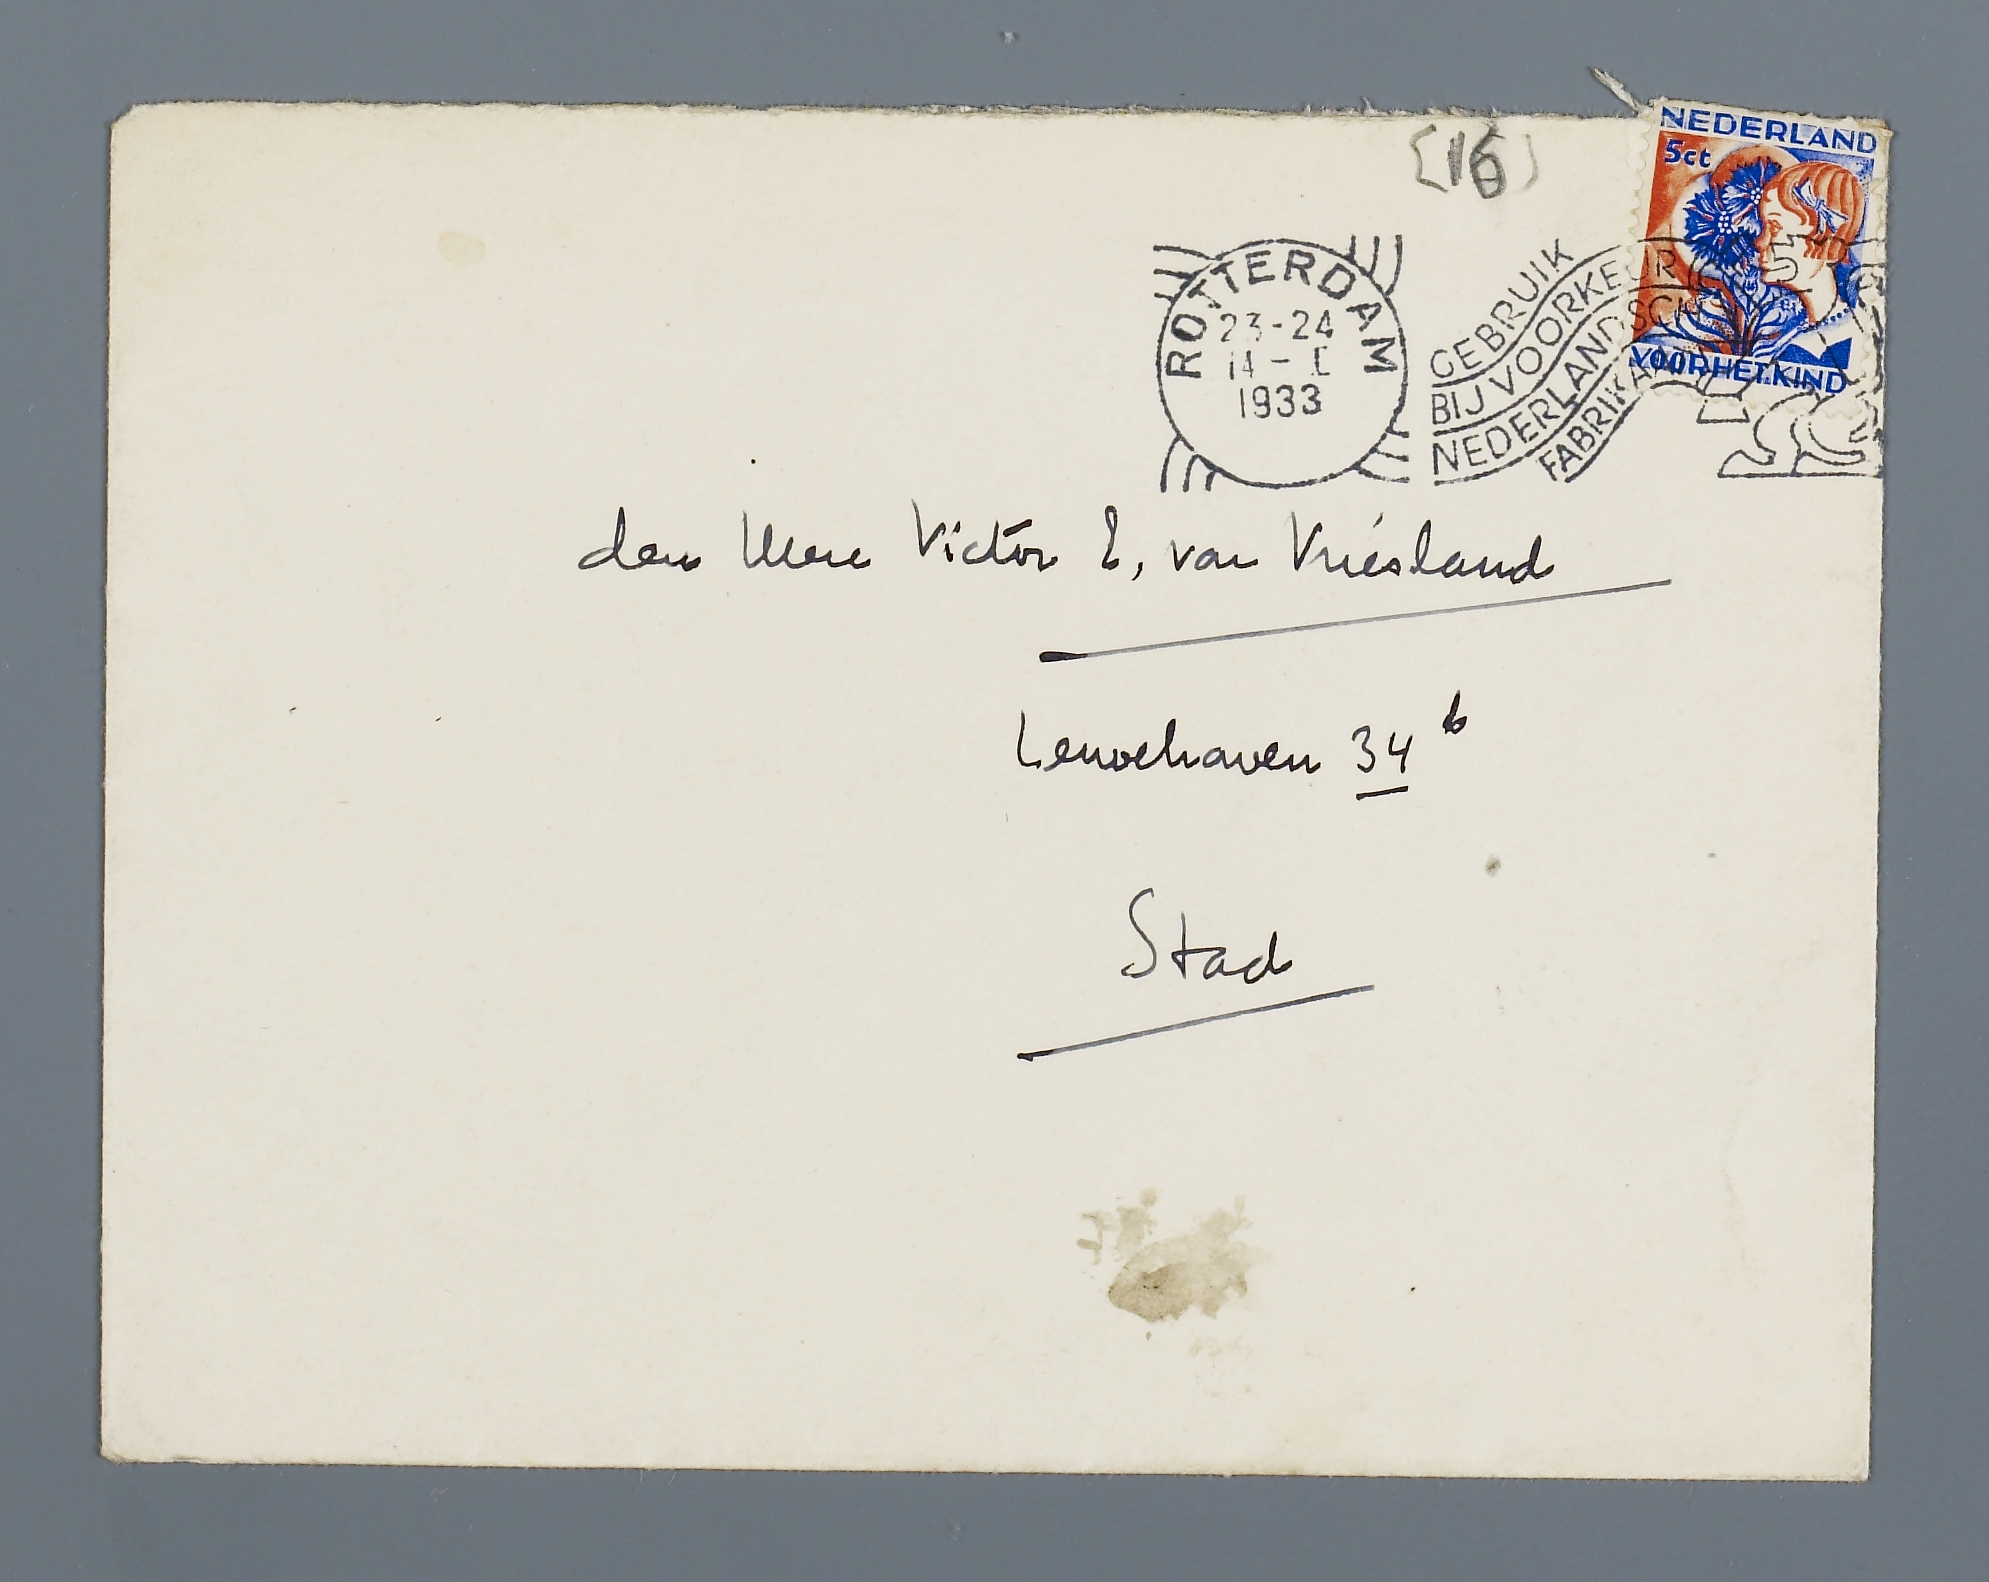 [16]
NEDERLAND
5ct
VOOR HET KIND
ROTTERDAM
23-24
14 - I
1933
GEBRUIK
BIJ VOORKEUR
NEDERLANDSCH
FABRIKAAT
den Heer Victor E. van Vriesland
Leuvehaven 34b
Stad